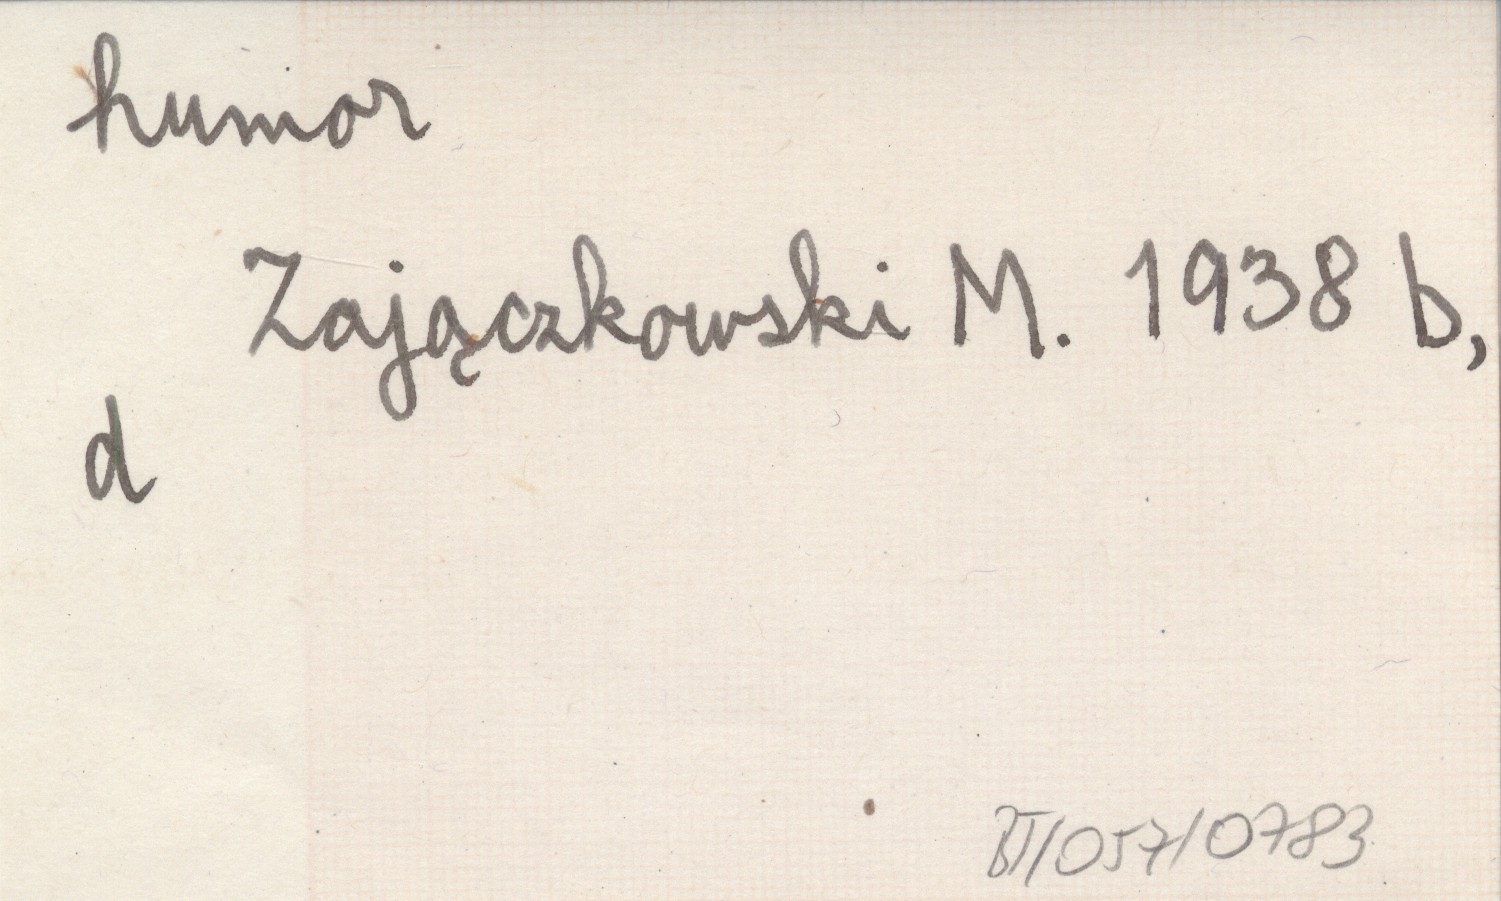 humor
Zajączkowski M. 1938 b,
d
BT/057/0783